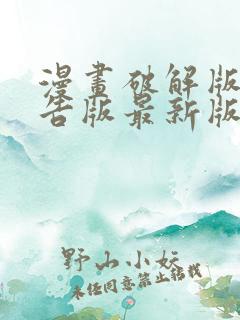 漫畫破解版
告版最新版
野山小妖
未经同意禁止转载